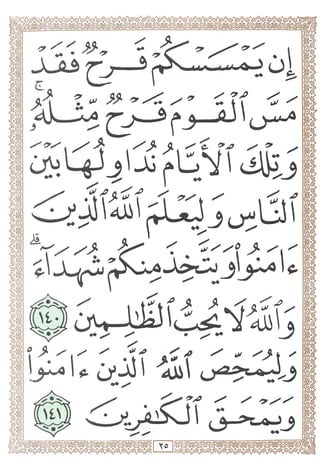 إِن يَمْسَسْكُمْ قَرْحٌ فَقَدْ
مَسَّ ٱلْقَوْمَ قَرْحٌ مِّثْلُهُۥۚ
وَتِلْكَ ٱلْأَيَّامُ نُدَاوِلُهَا بَيْنَ
ٱلنَّاسِ وَلِيَعْلَمَ ٱللَّهُ ٱلَّذِينَ
ءَامَنُوا۟ وَيَتَّخِذَ مِنكُمْ شُهَدَآءَۗ
وَٱللَّهُ لَا يُحِبُّ ٱلظَّـٰلِمِينَ ١٤٠
وَلِيُمَحِّصَ ٱللَّهُ ٱلَّذِينَ ءَامَنُوا۟
وَيَمْحَقَ ٱلْكَـٰفِرِينَ ١٤١
٢٥